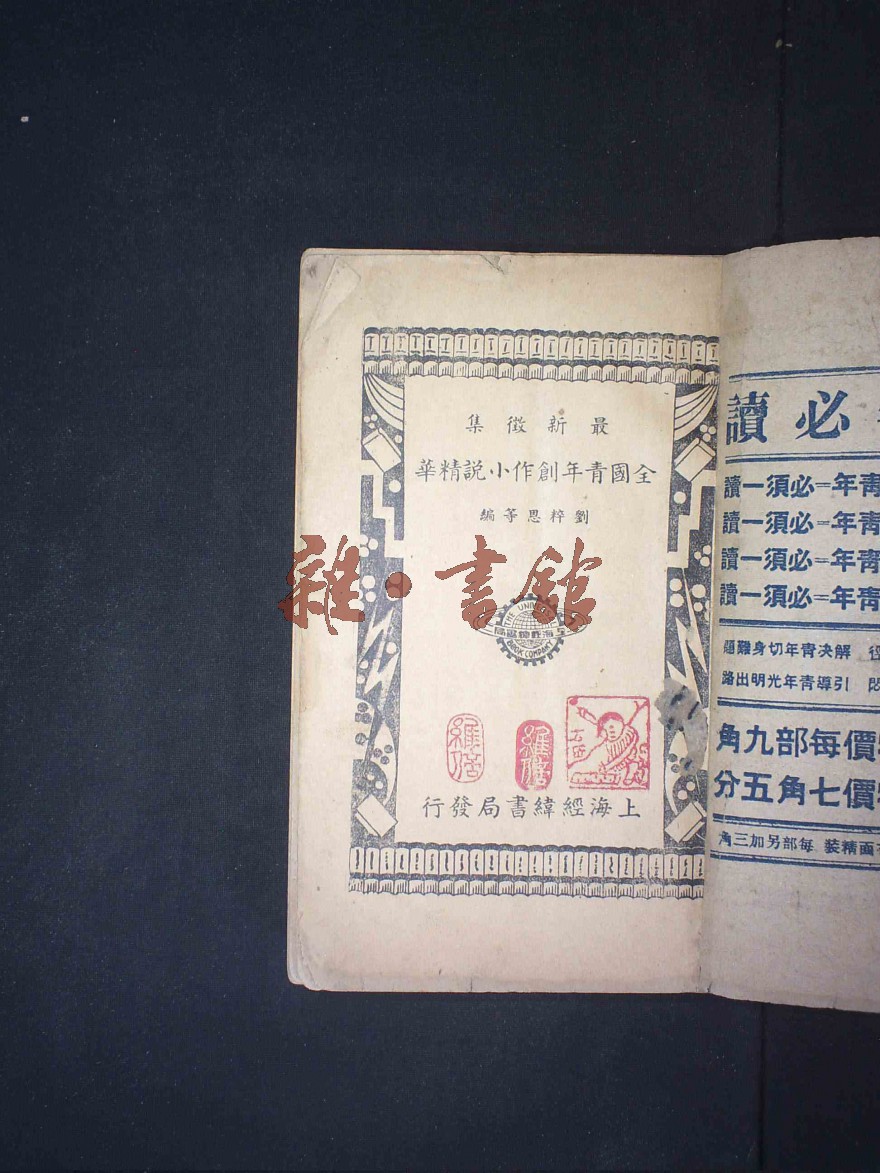 最新徵集
全國青年創作小說精華
劉粹思等編
雜·書館
THE UNIVE
BOOK COMPANY
維
維
上海經緯書局發行
必讀
青年=必須一讀
青年=必須一讀
青年=必須一讀
青年=必須一讀
解決青年切身難題
引導青年光明出路
價每部九角
價七角五分
面精裝 每部另加三角